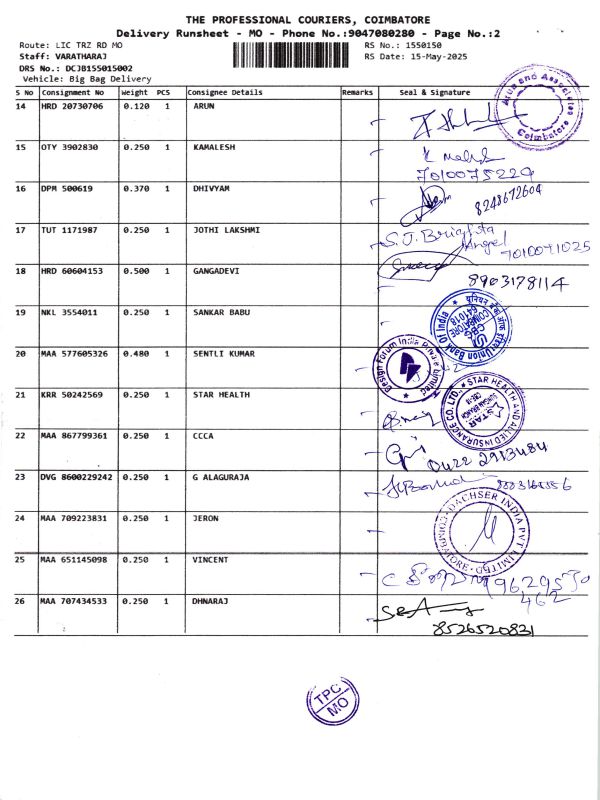 THE PROFESSIONAL COURIERS, COIMBATORE
Delivery Runsheet - MO - Phone No.:9047080280 - Page No.:2
Route: LIC TRZ RD MO
RS No.: 1550150
Staff: VARATHARAJ
RS Date: 15-May-2025
DRS No.: DCJB155015002
Vehicle: Big Bag Delivery
S No Consignment No Weight PCS Consignee Details Remarks Seal & Signature
14 HRD 20730706 0.120 1 ARUN
Arun and Associates Coimbatore
15 OTY 3902830 0.250 1 KAMALESH
7010075229
16 DPM 500619 0.370 1 DHIVYAM
8248672604
17 TUT 1171987 0.250 1 JOTHI LAKSHMI
S.J. Brighta
Angel
7010071025
18 HRD 60604153 0.500 1 GANGADEVI
8903178114
19 NKL 3554011 0.250 1 SANKAR BABU
Union Bank Of India
COIMBATORE
641018
20 MAA 577605326 0.480 1 SENTLI KUMAR
Design Forum India Private Limited
21 KRR 50242569 0.250 1 STAR HEALTH
STAR HEALTH AND ALLIED INSURANCE CO. LTD.
STAR
22 MAA 867799361 0.250 1 CCCA
0422 2913484
23 DVG 8600229242 0.250 1 G ALAGURAJA
24 MAA 709223831 0.250 1 JERON
DACHSER INDIA PVT LIMITED COIMBATORE
25 MAA 651145098 0.250 1 VINCENT
462
26 MAA 707434533 0.250 1 DHNARAJ
8526520831
TPC
MO